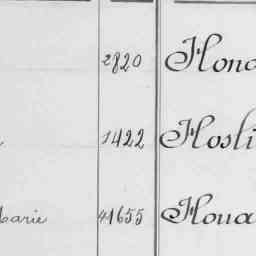 2820 Hono
1422 Hosli
Marie 41655 Houa